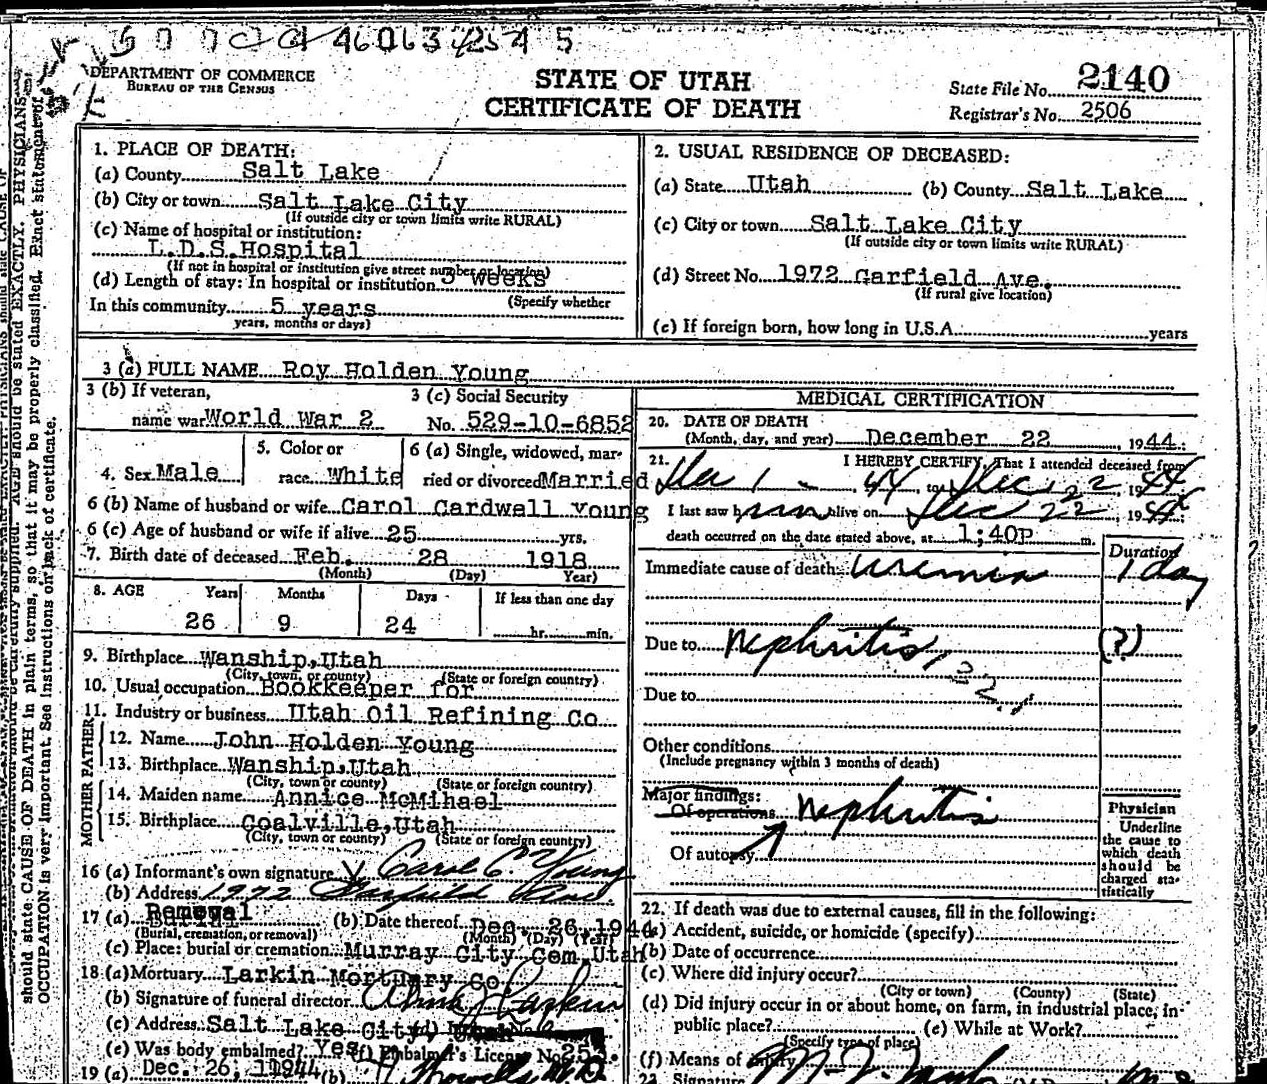 DEPARTMENT OF COMMERCE
BUREAU OF THE CENSUS
STATE OF UTAH
CERTIFICATE OF DEATH
State File No. 2140
Registrar's No. 2506
1. PLACE OF DEATH:
(a) County Salt Lake
(b) City or town Salt Lake City
(If outside city or town limits write RURAL)
(c) Name of hospital or institution:
L.D.S. Hospital
(If not in hospital or institution give street number or location)
(d) Length of stay: In hospital or institution 3 weeks
(Specify whether
In this community 5 years
years, months or days)
2. USUAL RESIDENCE OF DECEASED:
(a) State Utah (b) County Salt Lake
(c) City or town Salt Lake City
(If outside city or town limits write RURAL)
(d) Street No. 1972 Garfield Ave.
(If rural give location)
(e) If foreign born, how long in U.S.A. years
3 (a) FULL NAME Roy Holden Young
3 (b) If veteran, 3 (c) Social Security
name war World War 2 No. 529-10-6852
4. Sex Male 5. Color or race White 6 (a) Single, widowed, married or divorced Married
6 (b) Name of husband or wife Carol Cardwell Young
6 (c) Age of husband or wife if alive 25 yrs.
7. Birth date of deceased Feb. 28 1918
(Month) (Day) Year)
8. AGE Years Months Days If less than one day
26 9 24 hr. min.
9. Birthplace Wanship, Utah
(City, town, or county) (State or foreign country)
10. Usual occupation Bookkeeper for
11. Industry or business Utah Oil Refining Co
FATHER
12. Name John Holden Young
13. Birthplace Wanship, Utah
(City, town or county) (State or foreign country)
MOTHER
14. Maiden name Annice McMihael
15. Birthplace Coalville, Utah
(City, town or county) (State or foreign country)
16 (a) Informant's own signature Carol C. Young
(b) Address 1972 Garfield Ave
17 (a) Removal (b) Date thereof Dec. 26, 1944
(Burial, cremation, or removal) (Month) (Day) (Year)
(c) Place: burial or cremation Murray City Cem, Utah
18 (a) Mortuary Larkin Mortuary Co
(b) Signature of funeral director Larkin
(c) Address Salt Lake City,
(e) Was body embalmed? Yes (f) Embalmer's License No.
19 (a) Dec. 26, 1944 (b)
MEDICAL CERTIFICATION
20. DATE OF DEATH
(Month, day, and year) December 22 1944
21. I HEREBY CERTIFY, That I attended deceased from
1 - 44, to Dec 22 1944
I last saw him alive on Dec 22 1944
death occurred on the date stated above, at 1:40P m.
Duration
Immediate cause of death uremia 1 day
Due to nephritis (?)
Due to
Other conditions
(Include pregnancy within 3 months of death)
Major findings:
Of operations nephritis
Of autopsy
Physician
Underline
the cause to
which death
should be
charged sta-
tistically
22. If death was due to external causes, fill in the following:
(a) Accident, suicide, or homicide (specify)
(b) Date of occurrence
(c) Where did injury occur?
(City or town) (County) (State)
(d) Did injury occur in or about home, on farm, in industrial place, in
public place? (e) While at Work?
(Specify type of place)
(f) Means of injury
23. Signature
should state CAUSE OF DEATH in plain terms, so that it may be properly classified. Exact statement of
OCCUPATION is very important. See instructions on back of certificate.